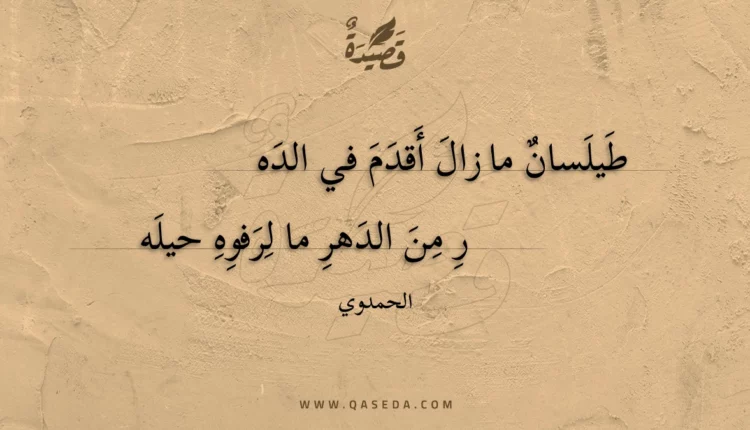 قَصِيْدَةٌ
طَيلَسانٌ ما زالَ أَقدَمَ في الدَه
رِ مِنَ الدَهرِ ما لِرَفوِهِ حيلَه
الحمدوي
WWW.QASEDA.COM